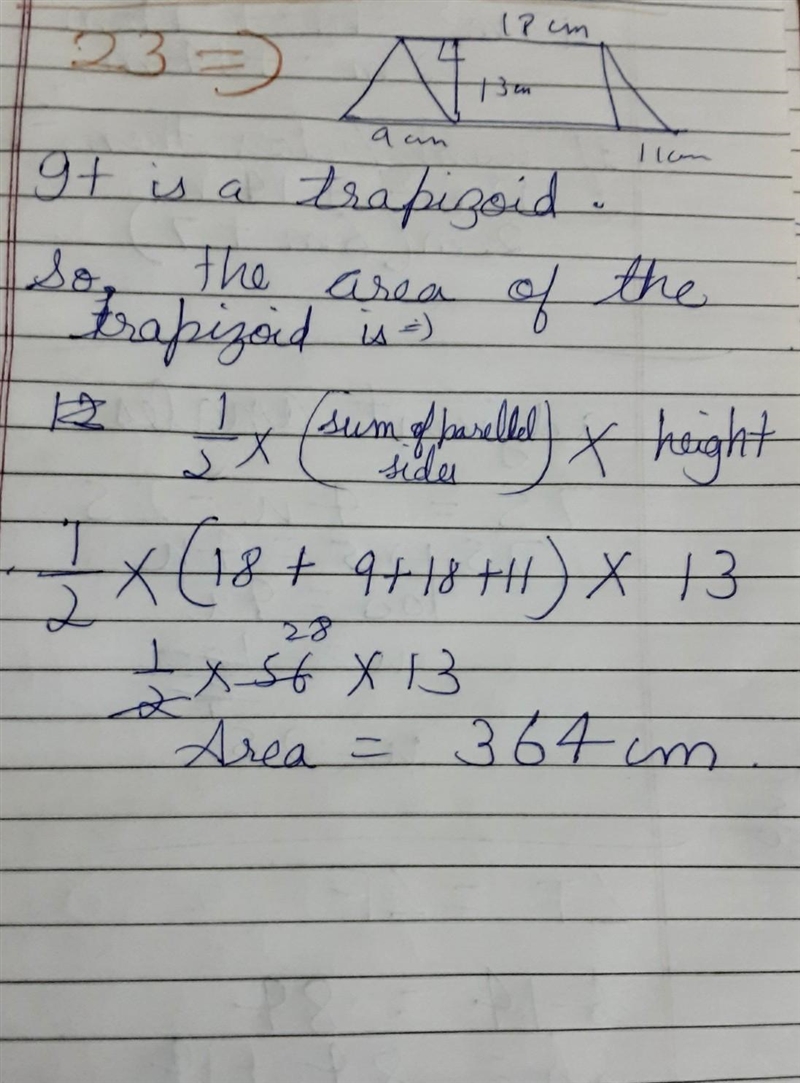 23 =)
18 cm
13cm
9 cm
11cm
It is a trapizoid.
So, the area of the
trapizoid is =)
1/2 × (sum of parellel sides) × height
1/2 × (18 + 9+18+11) × 13
28
1/2 × 56 × 13
Area = 364 cm.